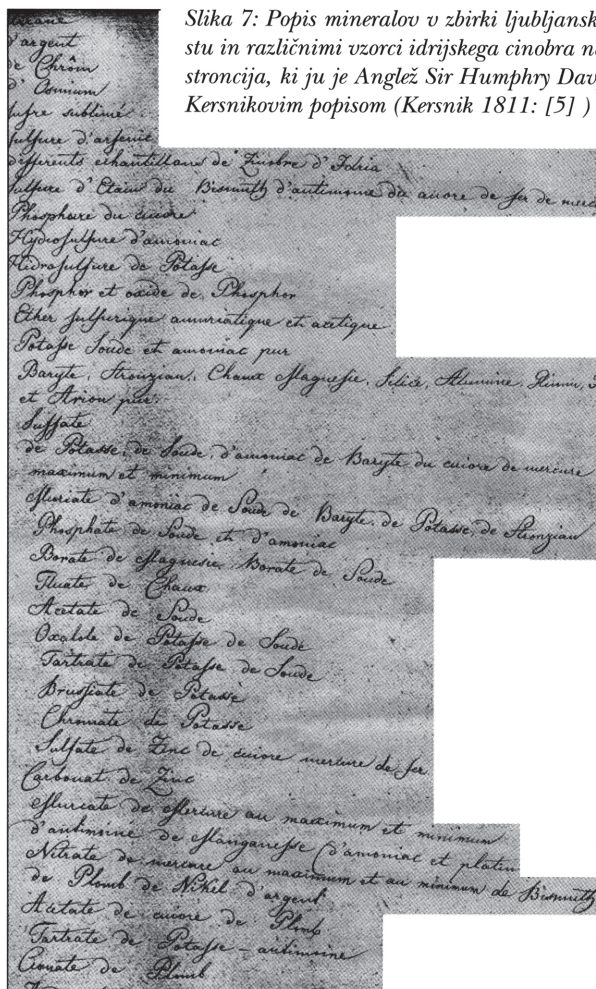 Slika 7: Popis mineralov v zbirki ljubljansk
stu in različnimi vzorci idrijskega cinobra n
stroncija, ki ju je Anglež Sir Humphry Dav
Kersnikovim popisom (Kersnik 1811: [5] )
d'argent
de Chrôm
d'Osmium
sufre sublimé
sulfure d'arsenic
differents echantillons de Zinobre d'Idria
sulfure d'Etain du Bismuth d'antimoine du cuivre de fer de merc
Phosphure du cuivre
Hydrosulfure d'amoniac
Hidrosulfure de Potasse
Phosphor et oxide de Phosphor
Ether sulfurique amuriatique et acetique
Potasse Soude et amoniac pur
Baryte, Stronzian, Chaux Magnesie, Silice, Alumine,
et pur
Sulfate
de Potasse, de Soude, d'amoniac de Baryte du cuivre de mercure
maximum et minimum
Muriate d'amoniac de Soude de Baryte, de Potasse, de Stronzian
Phosphate de Soude et d'amoniac
Borate de Magnesie Borate de Soude
Fluate de Chaux
Acetate de Soude
Oxalate de Potasse de Soude
Tartrate de Potasse de Soude
Prussiate de Potasse
Chromate de Potasse
Sulfate de Zinc de cuivre mercure de fer
Carbonat de Zinc
Muriate de Mercure au maximum et minimum
d'antimoine de Manganesse (d'amoniac et platin
Nitrate de mercure au maximum et au minimum de Bismuth
de Plomb de Nikel d'argent
Acetate de cuivre de Plomb
Tartrate de Potasse - antimoine
de Plomb